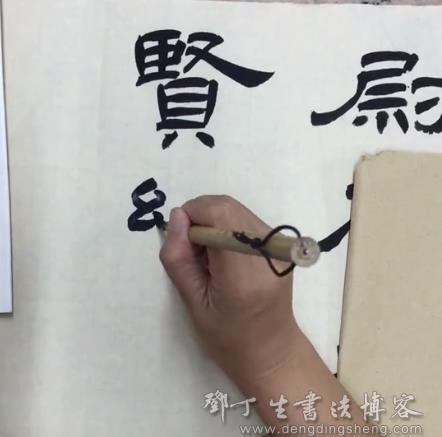 尉
賢
鄧丁生書法博客
www.dengdingsheng.com